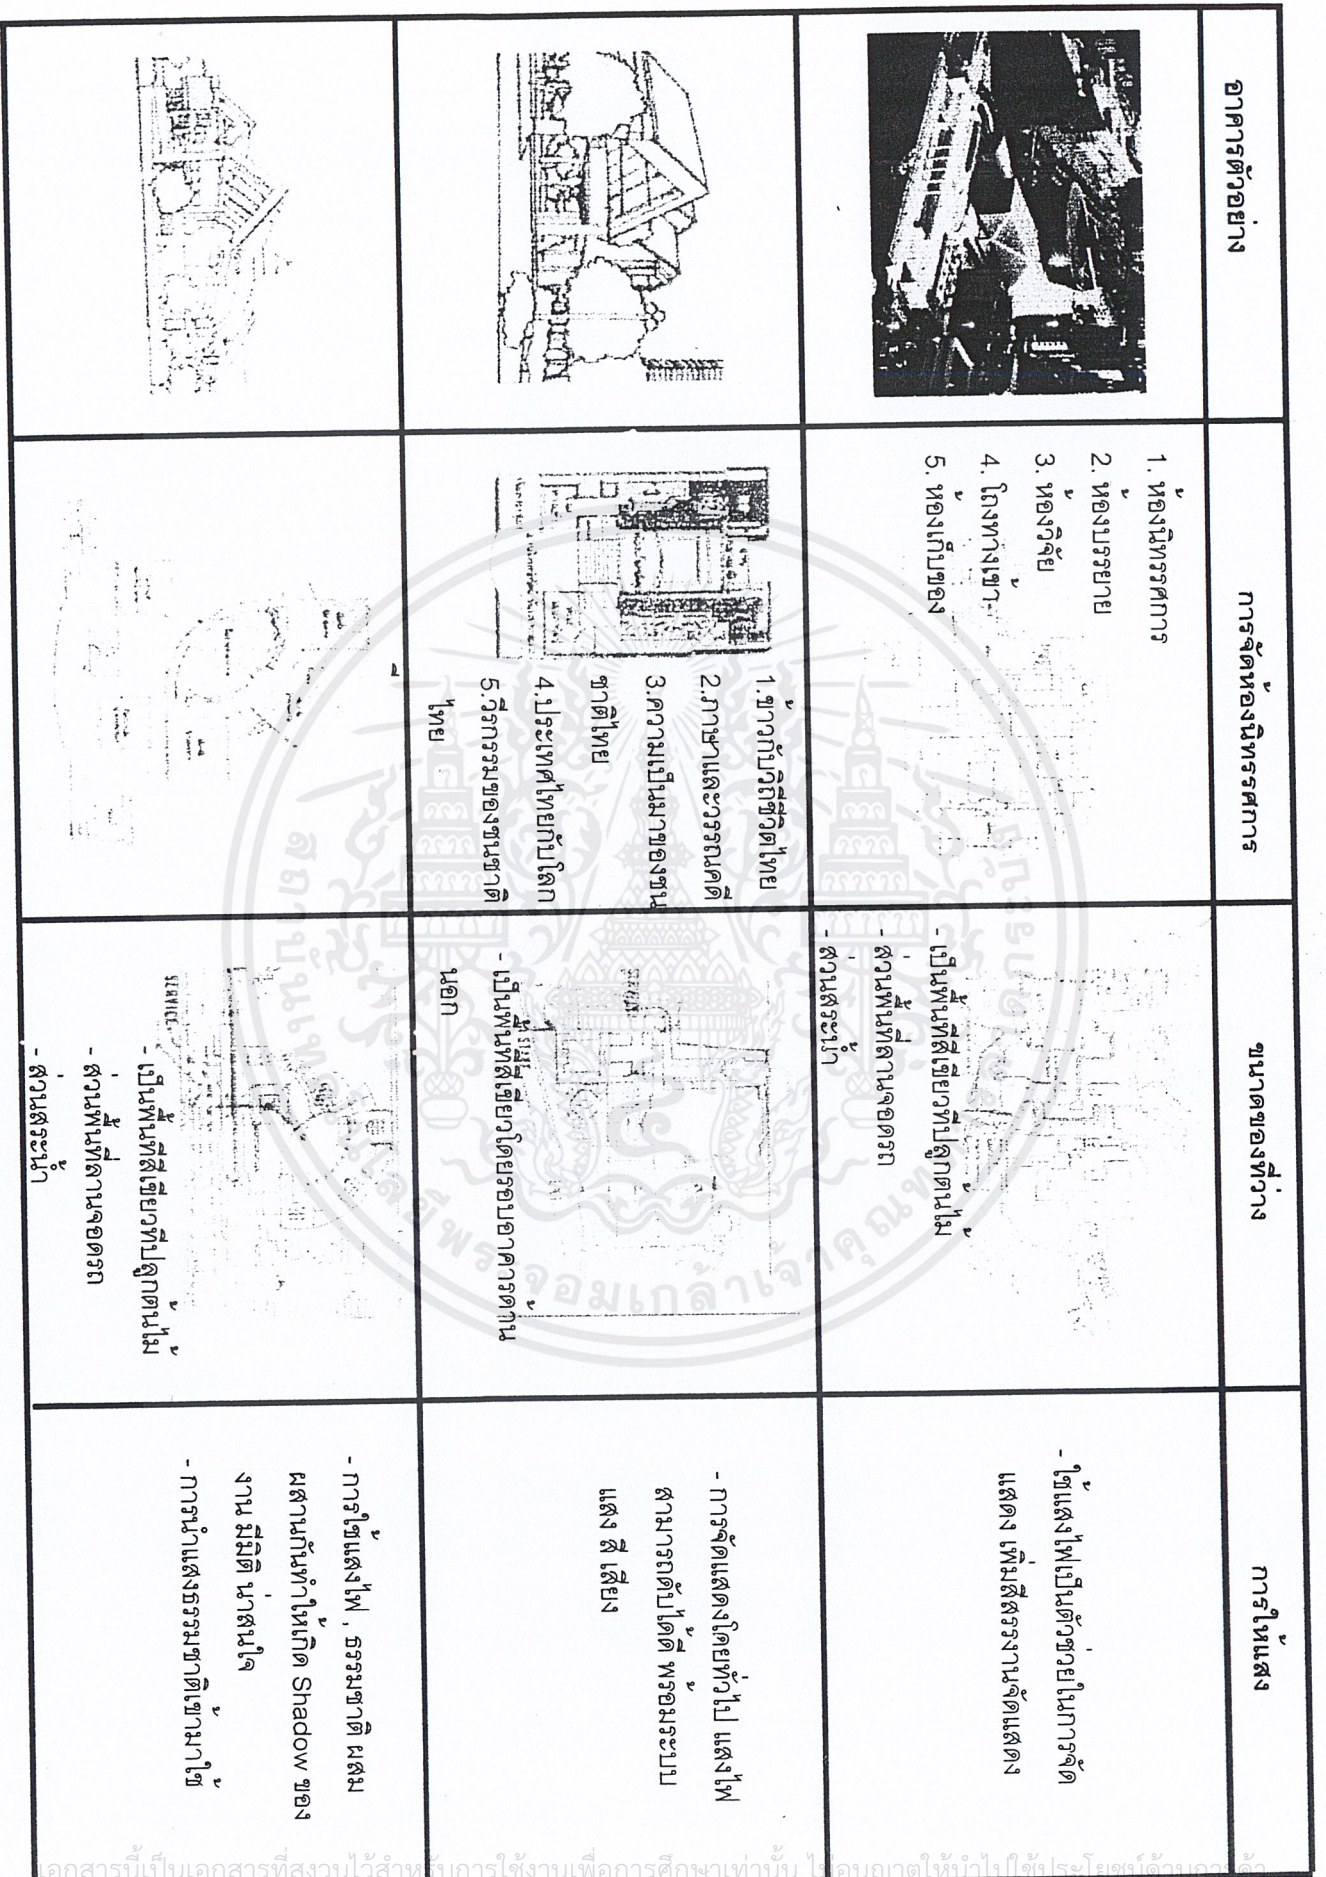 อาคารตัวอย่าง
การจัดห้องนิทรรศการ
ขนาดของที่ว่าง
การให้แสง
1. ห้องนิทรรศการ
2. ห้องบรรยาย
3. ห้องวิจัย
4. โถงทางเข้า
5. ห้องเก็บของ
- เป็นพื้นที่สีเขียวที่ปลูกต้นไม้
- ส่วนพื้นที่ลานจอดรถ
- ส่วนสระน้ำ
- ใช้แสงไฟเป็นตัวช่วยในการจัด
แสดง เพิ่มสีสรรงานจัดแสดง
1.ข้าวกับวิถีชีวิตไทย
2.ภาษาและวรรณคดี
3.ความเป็นมาของชน
ชาติไทย
4.ประเทศไทยกับโลก
5.วีรกรรมของชนชาติ
ไทย
- เป็นพื้นที่สีเขียวโดยรอบอาคารด้าน
นอก
- การจัดแสดงโดยทั่วไป แสงไฟ
สามารถดับได้ดี พร้อมระบบ
แสง สี เสียง
SERVICE
- เป็นพื้นที่สีเขียวที่ปลูกต้นไม้
- ส่วนพื้นที่ลานจอดรถ
- ส่วนสระน้ำ
- การใช้แสงไฟ , ธรรมชาติ ผสม
ผสานกันทำให้เกิด Shadow ของ
งาน มีมิติ น่าสนใจ
- การนำแสงธรรมชาติเข้ามาใช้
เอกสารนี้เป็นเอกสารที่สงวนไว้สำหรับการใช้งานเพื่อการศึกษาเท่านั้น ไม่อนุญาตให้นำไปใช้ประโยชน์ด้านการค้า